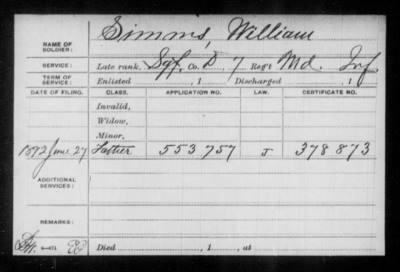 NAME OF SOLDIER: Simms, William
SERVICE: Late rank, Sgt. Co. D 7 Reg't Md. Inf
TERM OF SERVICE: Enlisted , 1 Discharged , 1
DATE OF FILING. CLASS. APPLICATION NO. LAW. CERTIFICATE NO.
Invalid,
Widow,
Minor,
1892 June 27 Father 553757 J 378873
ADDITIONAL SERVICES:
REMARKS:
Died , 1 , at